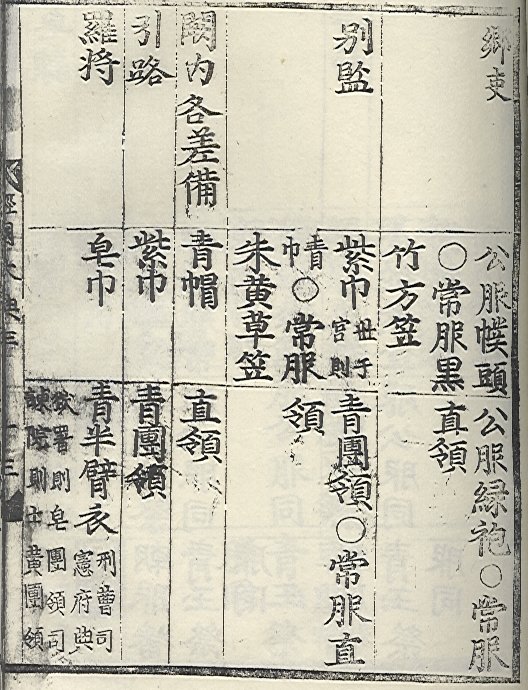 鄉吏 公服幞頭 公服緑袍○常服
○常服黑 直領
竹方笠
别監 紫巾 世子宮則 青團領○常服直
青巾○常服 領
朱黄草笠
闕内各差備 青帽 直領
引路 紫巾 青團領
羅将 皂巾 青半臂衣 刑曹司憲府典
獄署則皂團領司
諫院則土黄團領
經國大典